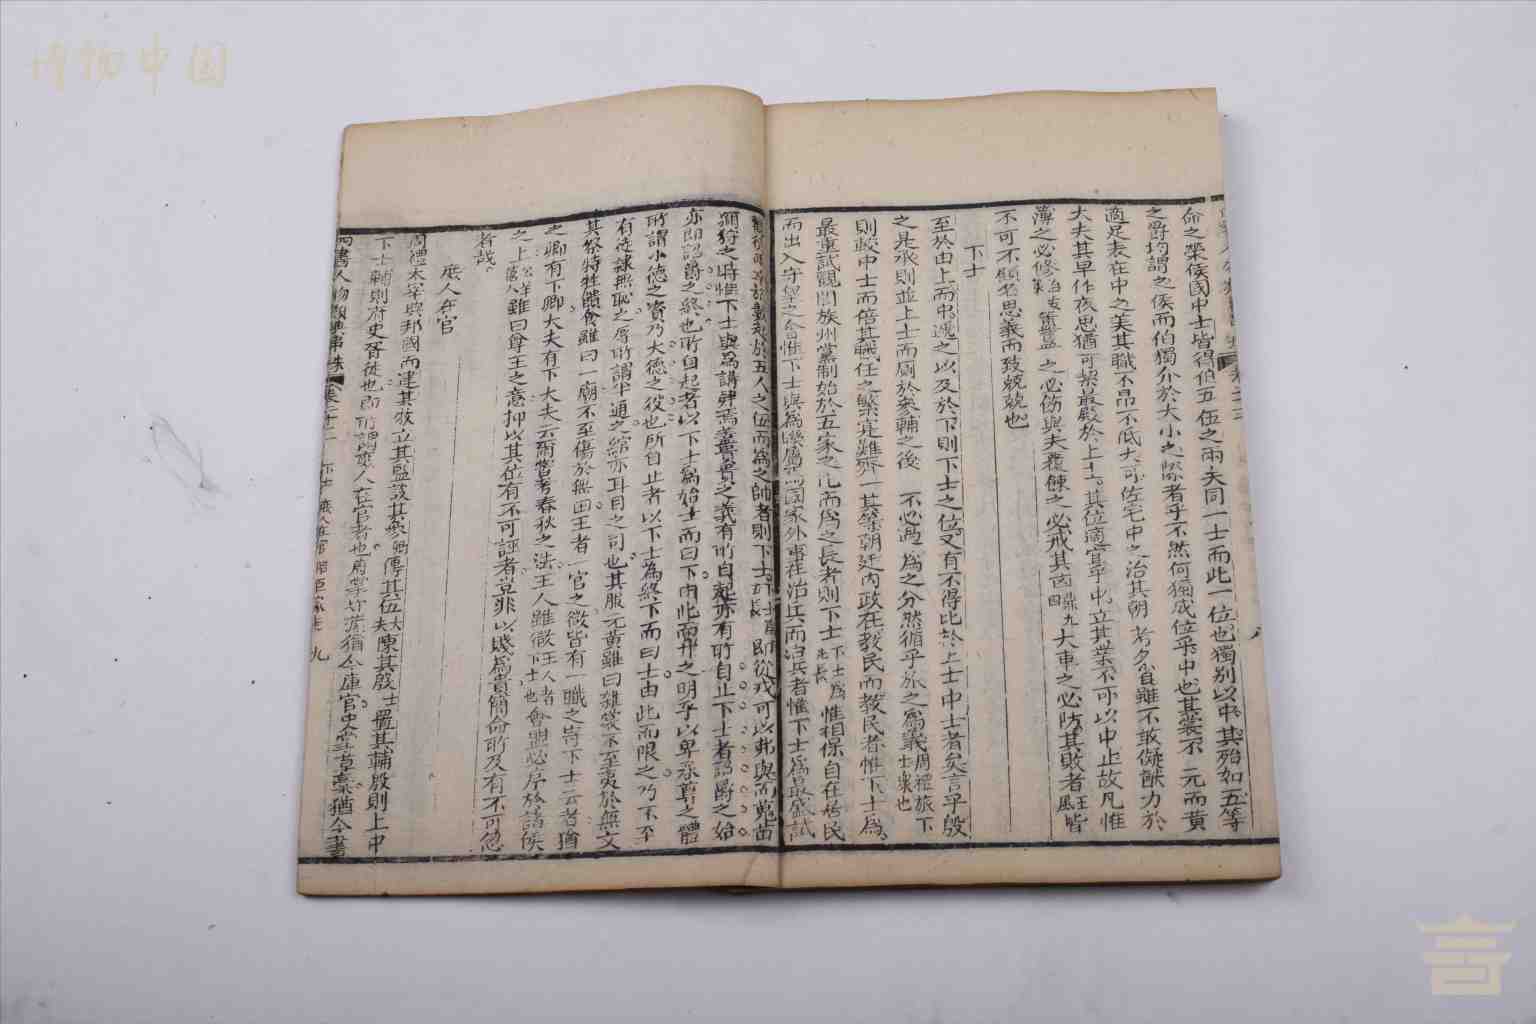 博物中国
命之榮侯國中士皆得伯五伍之兩夫同一士而此一位也獨別以中其殆如五等
之爵均謂之侯而伯獨介於大小之際者乎不然何獨成位乎中也其裳不元而黃
適足表在中之美其職不昂不低大可佐宅中之治其朝考夕省雖不敢儗猷力於
大夫其早作夜思猶可挈最殿於上士其位適宜乎中立其業不可以中止故凡惟
簿之必修簠簋之必飭與夫覆餗之必戒其㐫大車之必防其敗者皆
不可不顧名思義而致兢兢也
下士
至於由上而中遞之以及於下則下士之位又有不得比於上士中士者矣言乎殷
之是承則並上士而廁於參輔之後不必過為之分然循乎旅之為義周禮旅下士衆也
則較中士而倍其職任之繁寃難齊一其等朝廷內政在教民而教民者惟下士為
最重試觀閭族州黨制始於五家之比而為之長者則下士下士為比長惟相保自在於民
而出入守望之會惟下士與為聯屬國家外事在治兵而治兵者惟下士為最盛試
於五人之伍而為之帥者則下士即從戎可以弗與而蒐苗
獮狩之時惟下士與為講肄焉善夫賁之義有所自起亦有所自止下士者詔爵之始
亦即詔爵之終也所自起者以下士為始士而曰下由此而升之明乎以卑承尊之體
所謂小德之資乃大德之役也所自止者以下士為終下而曰士由此而限之乃不至
有徒隸無恥之辱所謂半通之綰亦耳目之司也其服元黃雖曰雜裳不至夷於無文
其祭特牲饋食雖曰一廟不至傷於無田王者一官之微皆有一職之寄下士云者猶
之卿有下卿大夫有下大夫云爾嘗考春秋之法王人雖微王人者下士也會盟必序於諸侯
之上雖曰尊王之意抑以其位有不可誣者豈非以賤為貴簡命所及有不可忽
者哉
庶人在官
周禮太宰興邦國而建其牧立其監設其參傅其伍大夫陳其殷士置其輔殷則上中
下士輔則府史胥徒也即所謂庶人在官者也府掌貯藏猶今庫官史掌草藁猶今書
四書人物類典串珠 卷之十二 下士 庶人在官 九